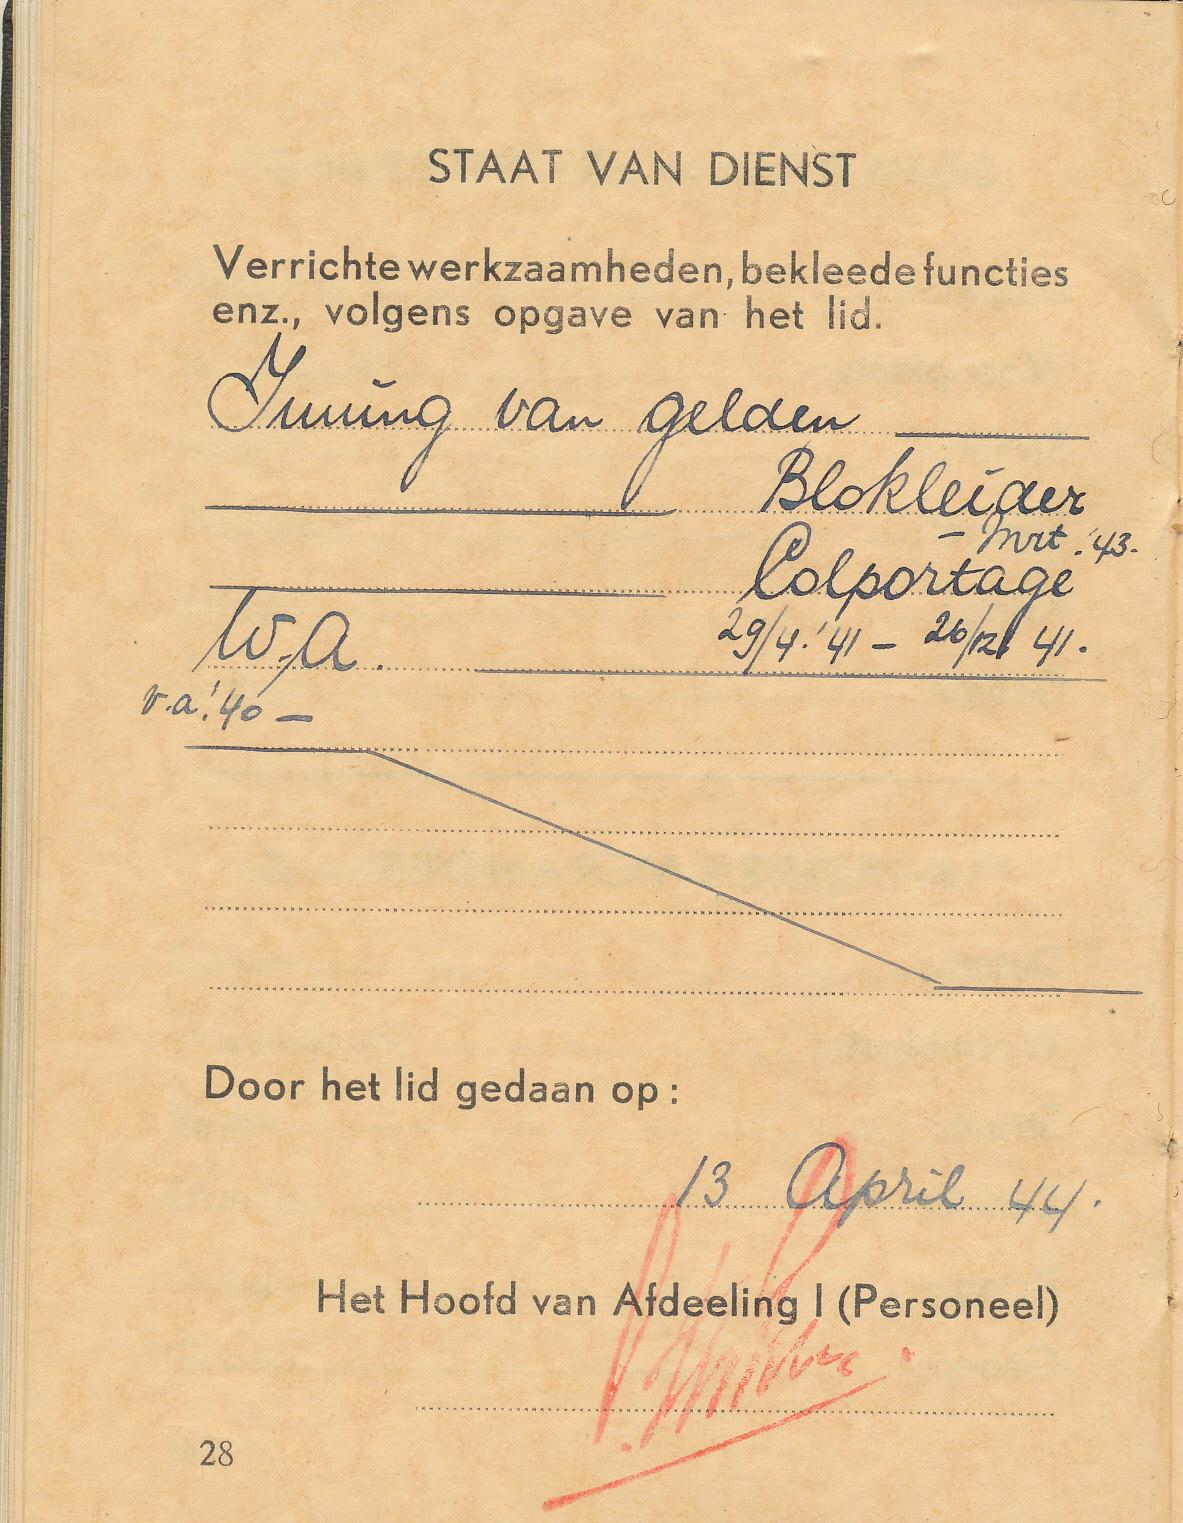 STAAT VAN DIENST
Verrichte werkzaamheden, bekleede functies
enz., volgens opgave van het lid.
Inning van gelden
Blokleider
– Mrt. '43.
Colportage
29/4.'41 – 26/12 41.
W.A.
v.a.'40 –
Door het lid gedaan op:
13 April 44.
Het Hoofd van Afdeeling I (Personeel)
28